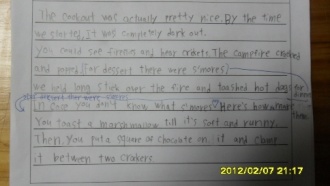 The cookout was actually pretty nice. By the time
we started, it was completely dark out.
you could see firefliis and hear crikets. The campfire
and popped for dessert there were s'mores
we held long stick over the fire and toashed hot dogs for
In case you don't know what s'mores Here's how
You toast a marshmallow till it's soft and runny.
Then you put a square of chocolate on it and
it between two crakers.
2012/02/07 21:17